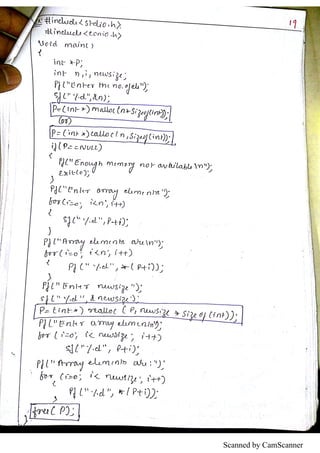 19
#include<stdio.h>
#include<conio.h>
Void main()
{
int *P;
int n,i, newsize;
Pf("Enter the no.of ele");
Sf("%d",&n);
P=(int *) malloc (n*Sizeof(int));
(or)
P=(int *) calloc(n, Sizeof(int));
if (P==NULL)
{
Pf("Enough memory not available\n");
exit(0);
}
Pf("Enter array elements");
for(i=0; i<n; i++)
{
Sf("%d", P+i);
}
Pf("Array elements are\n");
for(i=0; i<n; i++)
{
Pf("%d", *(P+i));
}
Pf("Enter newsize");
Sf("%d", & newsize);
P=(int *) realloc (P, newsize * Size of (int));
Pf("Enter array elements");
for (i=0; i< newsize; i++)
Sf("%d", P+i);
Pf("Array elements are:");
for (i=0; i< newsize; i++)
Pf("%d", *(P+i));
free(P);
}
Scanned by CamScanner